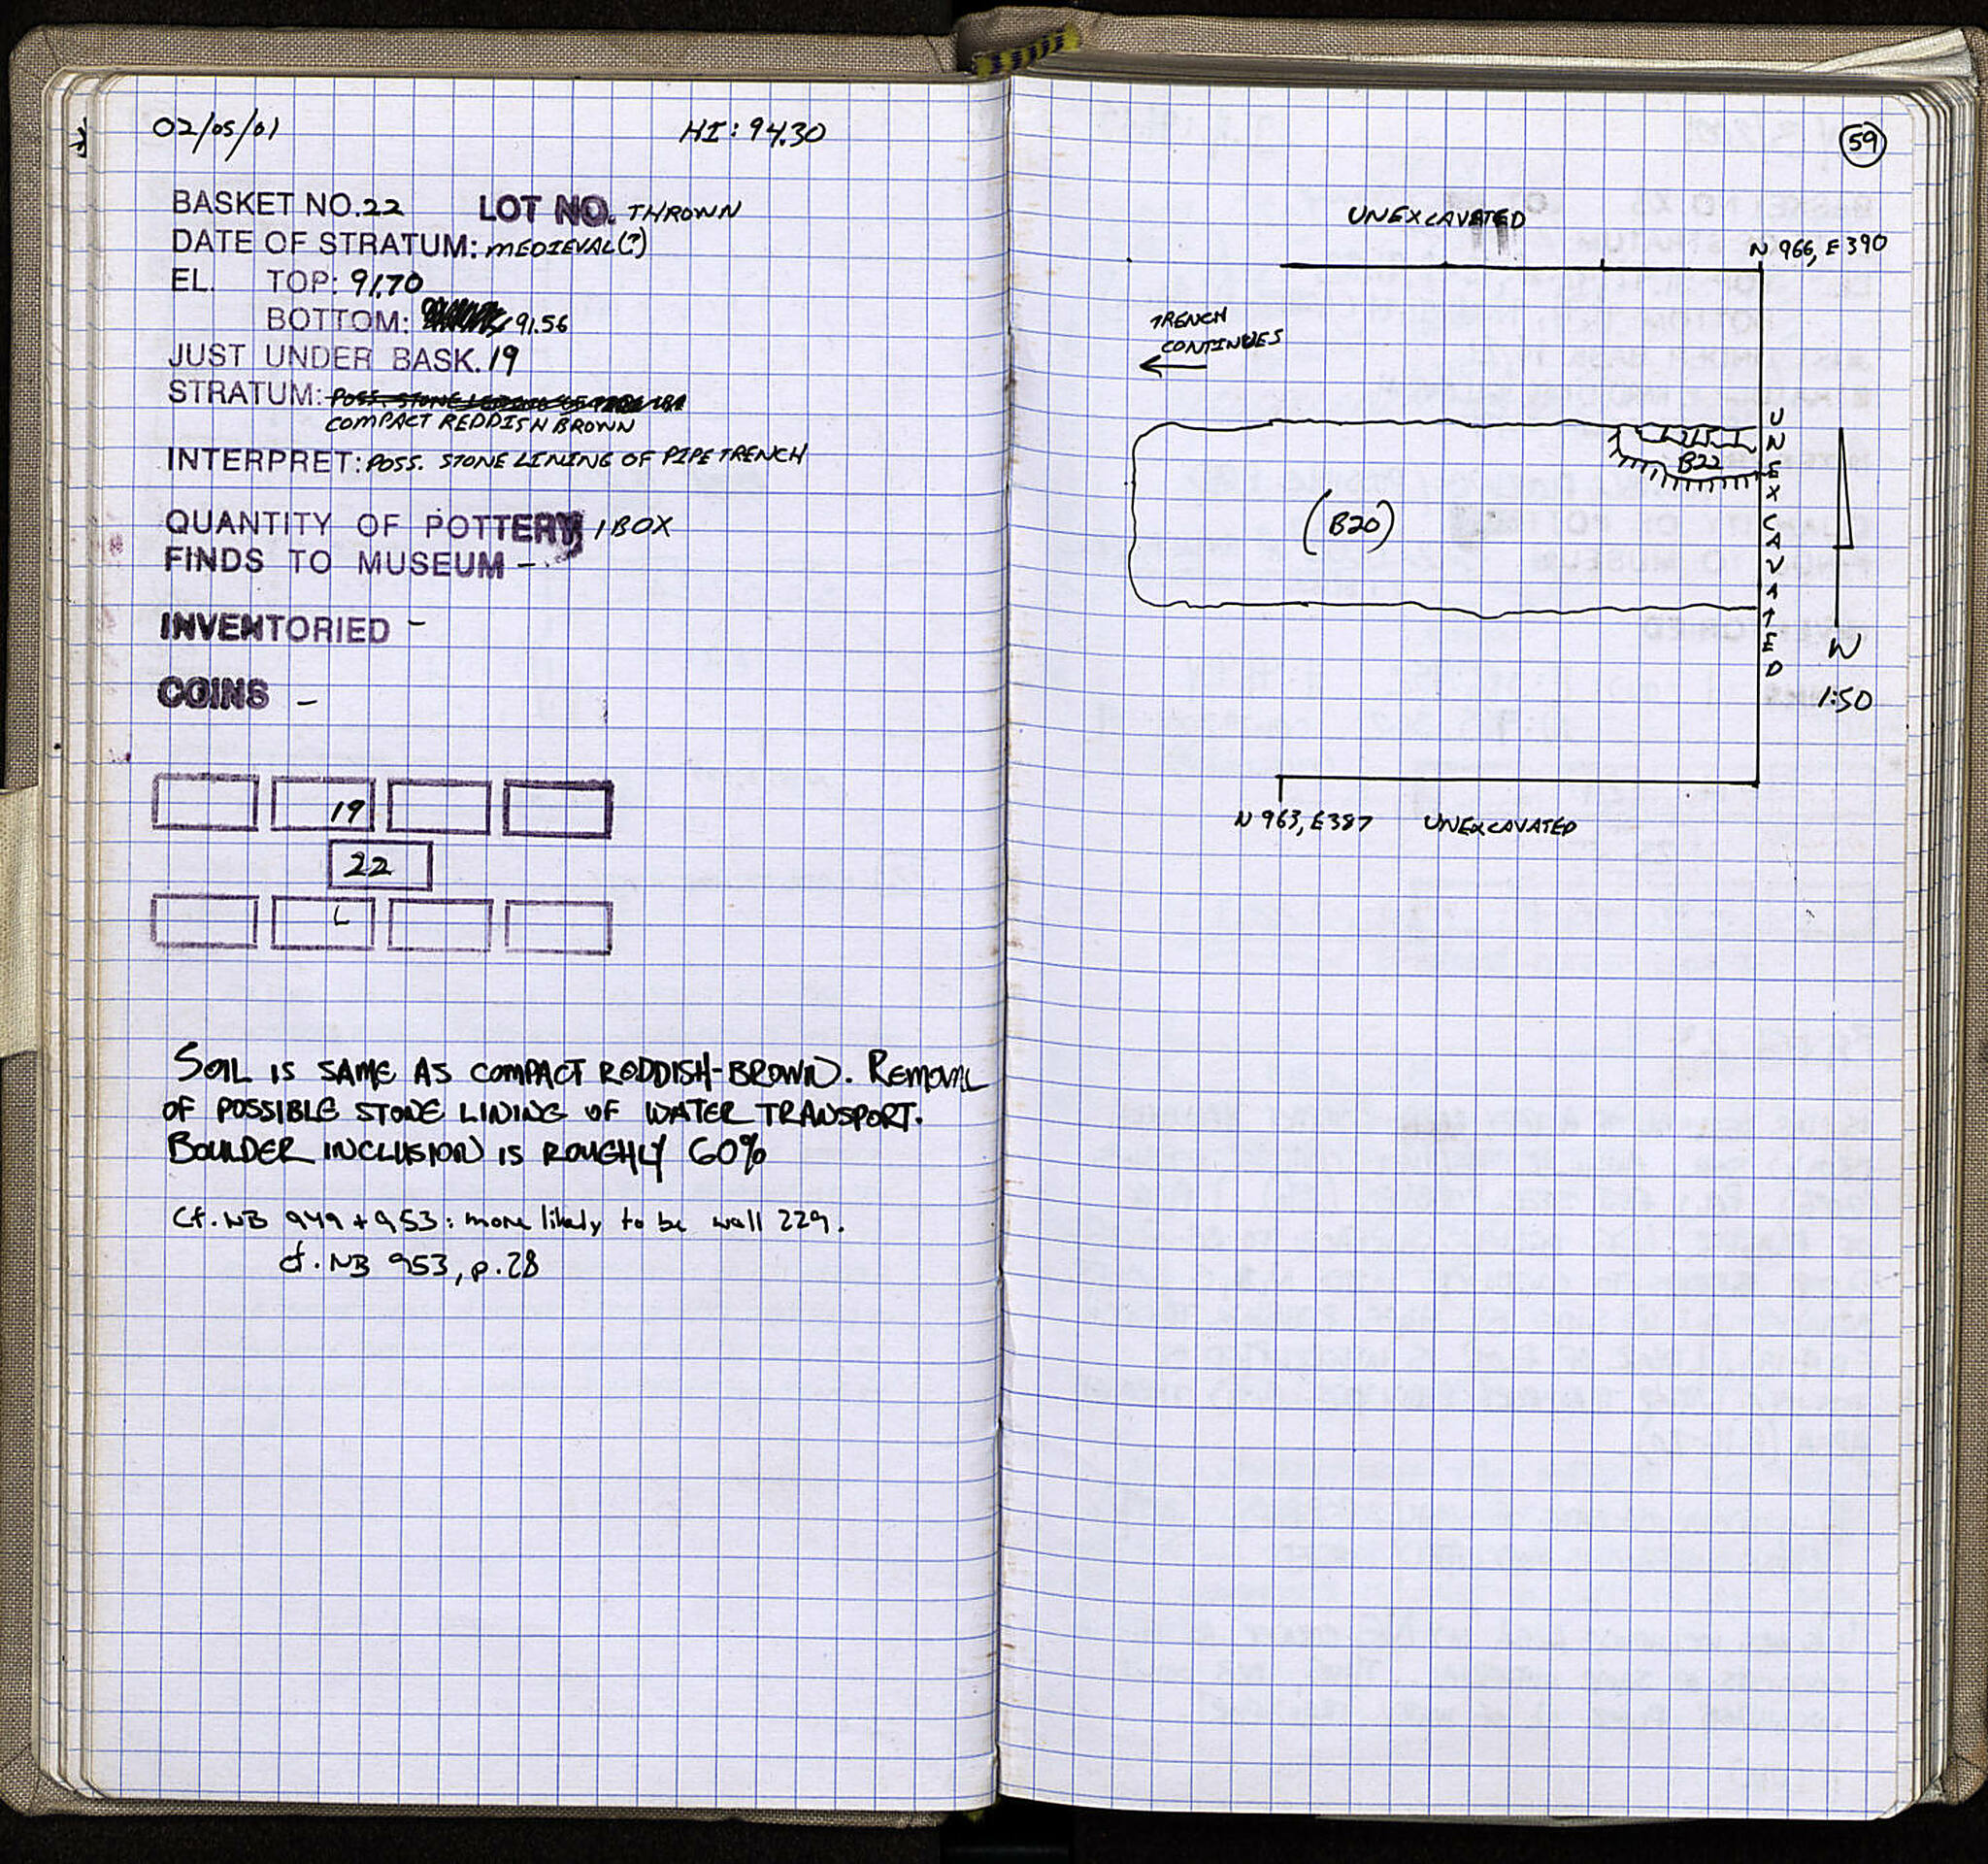 02/05/01 HI: 94.30
BASKET NO. 22 LOT NO. THROWN
DATE OF STRATUM: MEDIEVAL(?)
EL. TOP: 91.70
BOTTOM: 91.56
JUST UNDER BASK. 19
STRATUM:
COMPACT REDDISH BROWN
INTERPRET: POSS. STONE LINING OF PIPE TRENCH
QUANTITY OF POTTERY 1 BOX
FINDS TO MUSEUM -
INVENTORIED -
COINS -
19
22
L
SOIL IS SAME AS COMPACT REDDISH-BROWN. REMOVAL
OF POSSIBLE STONE LINING OF WATER TRANSPORT.
BOULDER INCLUSION IS ROUGHLY 60%
Cf. NB 949 + 953: more likely to be wall 229.
cf. NB 953, p.28
59
UNEXCAVATED
N 966, E 390
TRENCH
CONTINUES
B22
(B20)
UNEXCAVATED
N
1:50
N 963, E387 UNEXCAVATED